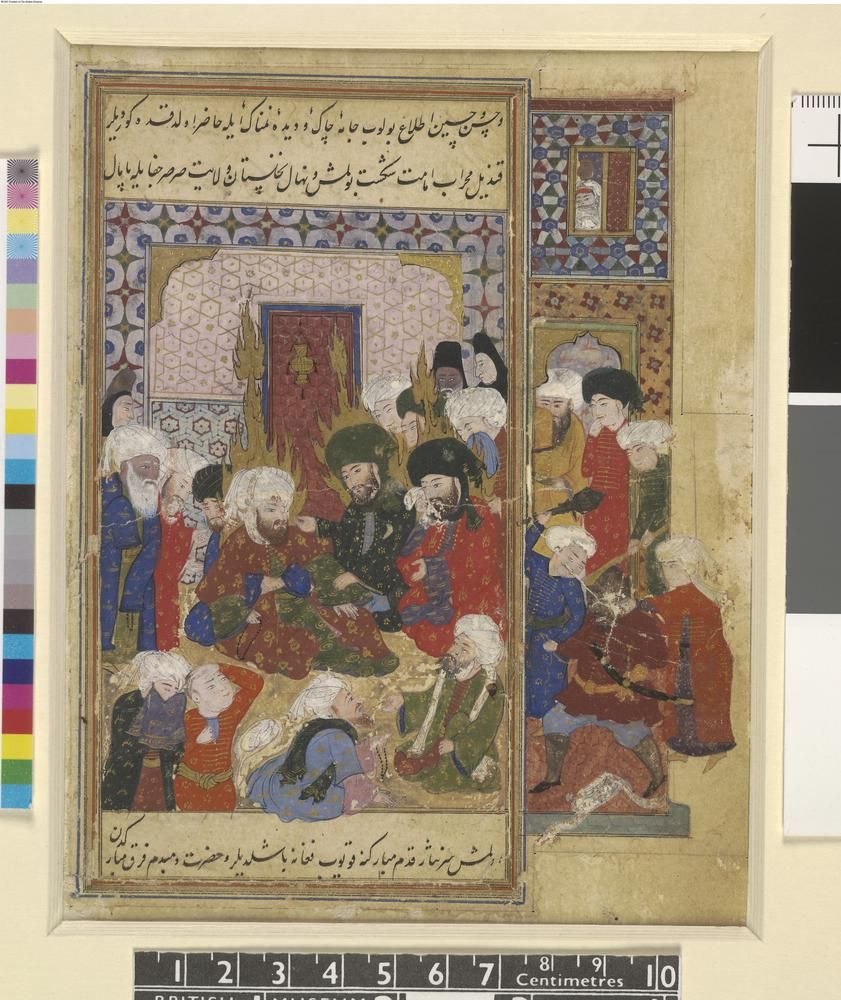 وحسن وحسین اطلاع بولوب جامهٔ چاک و دیدهٔ نمناک ایله حاضر اولدقده کوردیلر
قندیل محراب امامت شکست بولمش و نهال نخلستان ولایت صرصر جفا ایله پایمال
اولمش سر نیاز قدم مبارکنه قویوب فغانه باشلدیلر و حضرت دمبدم فرق مبارکن
1 2 3 4 5 6 7 8 9 10
Centimetres
BRITISH MUSEUM